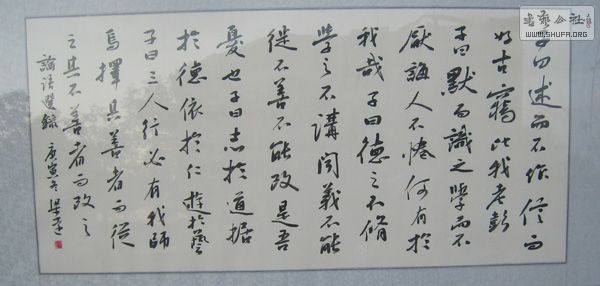 子曰述而不作信而
好古竊比我老彭
子曰默而識之學而不
厭誨人不倦何有於
我哉子曰德之不脩
學之不講聞義不能
徙不善不能改是吾
憂也子曰志於道據
於德依於仁遊於藝
子曰三人行必有我師
焉擇其善者而從
之其不善者而改之
論語選錄 庚寅冬
書藝公社
WWW.SHUFA.ORG